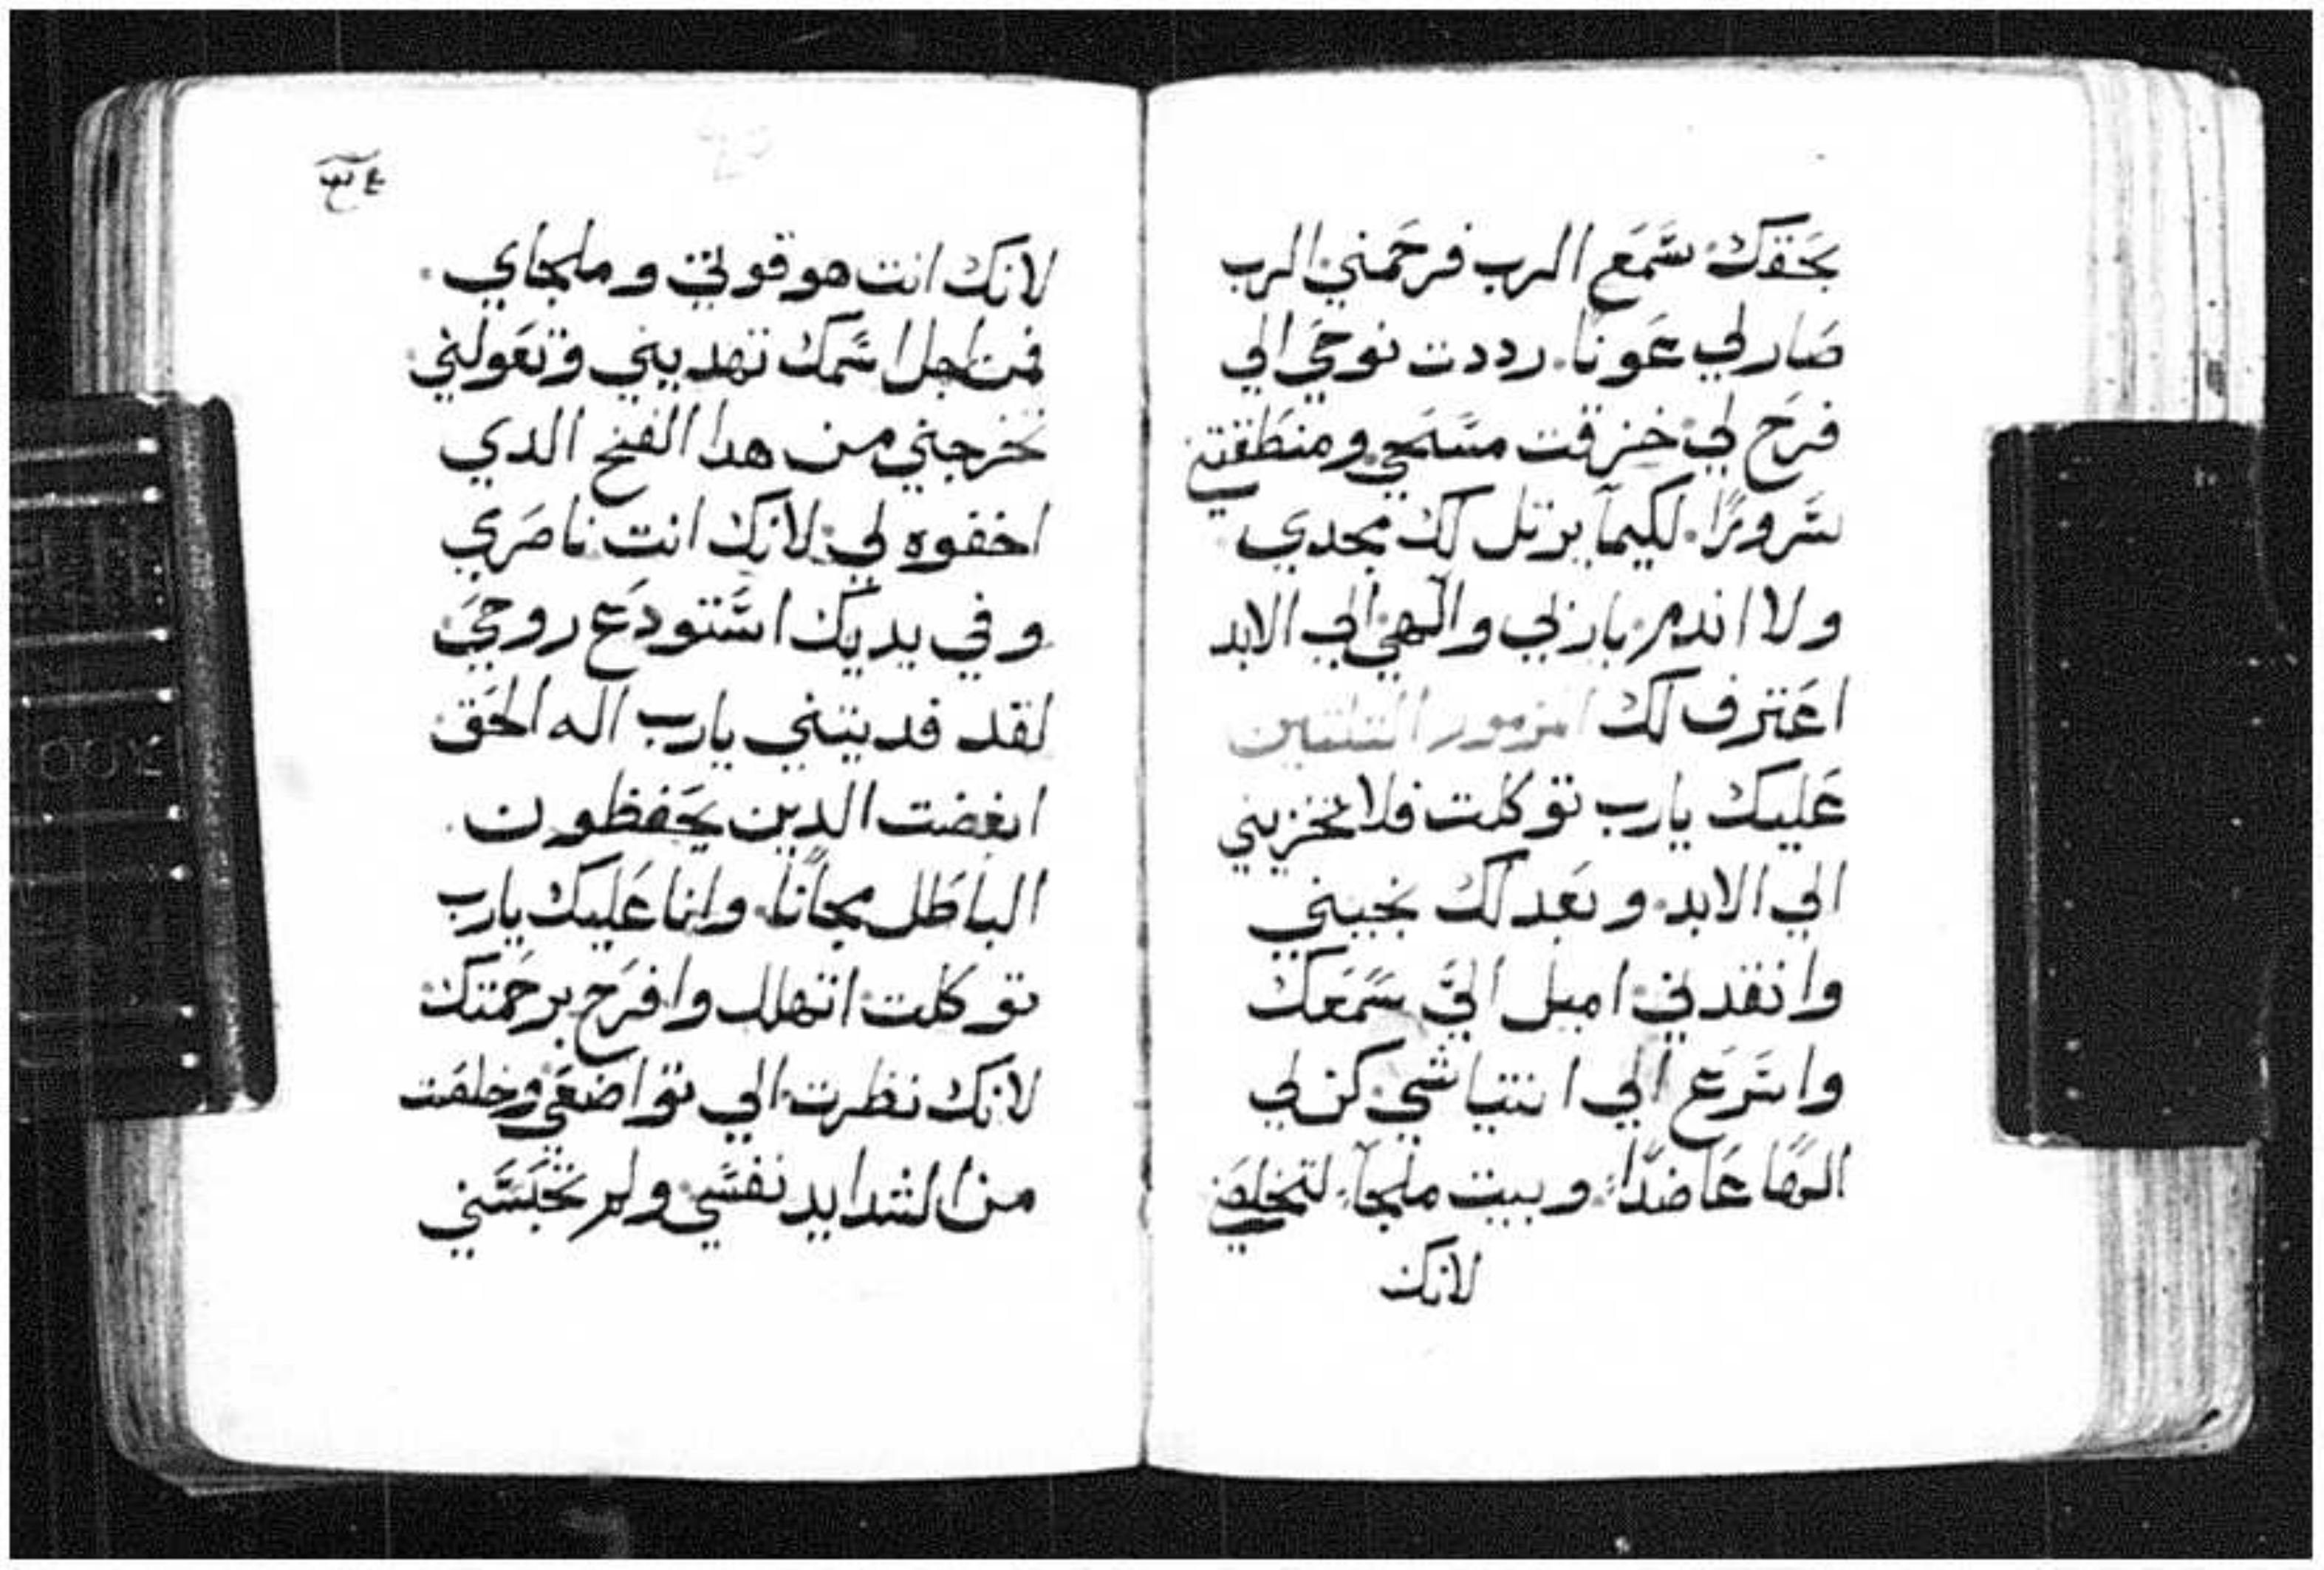 بحقك سمع الرب فرحمني الرب
صار لي عونا. رددت نوحي الي
فرح لي خزقت مسحي ومنطقتني
سرورًا. لكيما يرتل لك مجدي
ولا اندم ياربي والهي الي الابد
اعترف لك المزمور التلتين
عليك يارب توكلت فلا تخزيني
الي الابد وبعدلك نجيني
وانقدني اميل اليَّ سمعك
واسرع الي انتياشي كن لي
الهًا عاضدًا وبيت ملجآ لتخلصني
لانك
لانك انت هو قوتي وملجاي
فمن اجل اسمك تهديني وتعولني
تخرجني من هدا الفخ الدي
اخفوه لي لانك انت ناصري
وفي يديك استودع روحي
لقد فديتني يارب اله الحق
ابغضت الدين يحفظون
الباطل مجانًا وانا عليك يارب
توكلت اتهلل وافرح برحمتك
لانك نظرت الي تواضعي وخلصت
من الشدايد نفسي ولم تحبسني